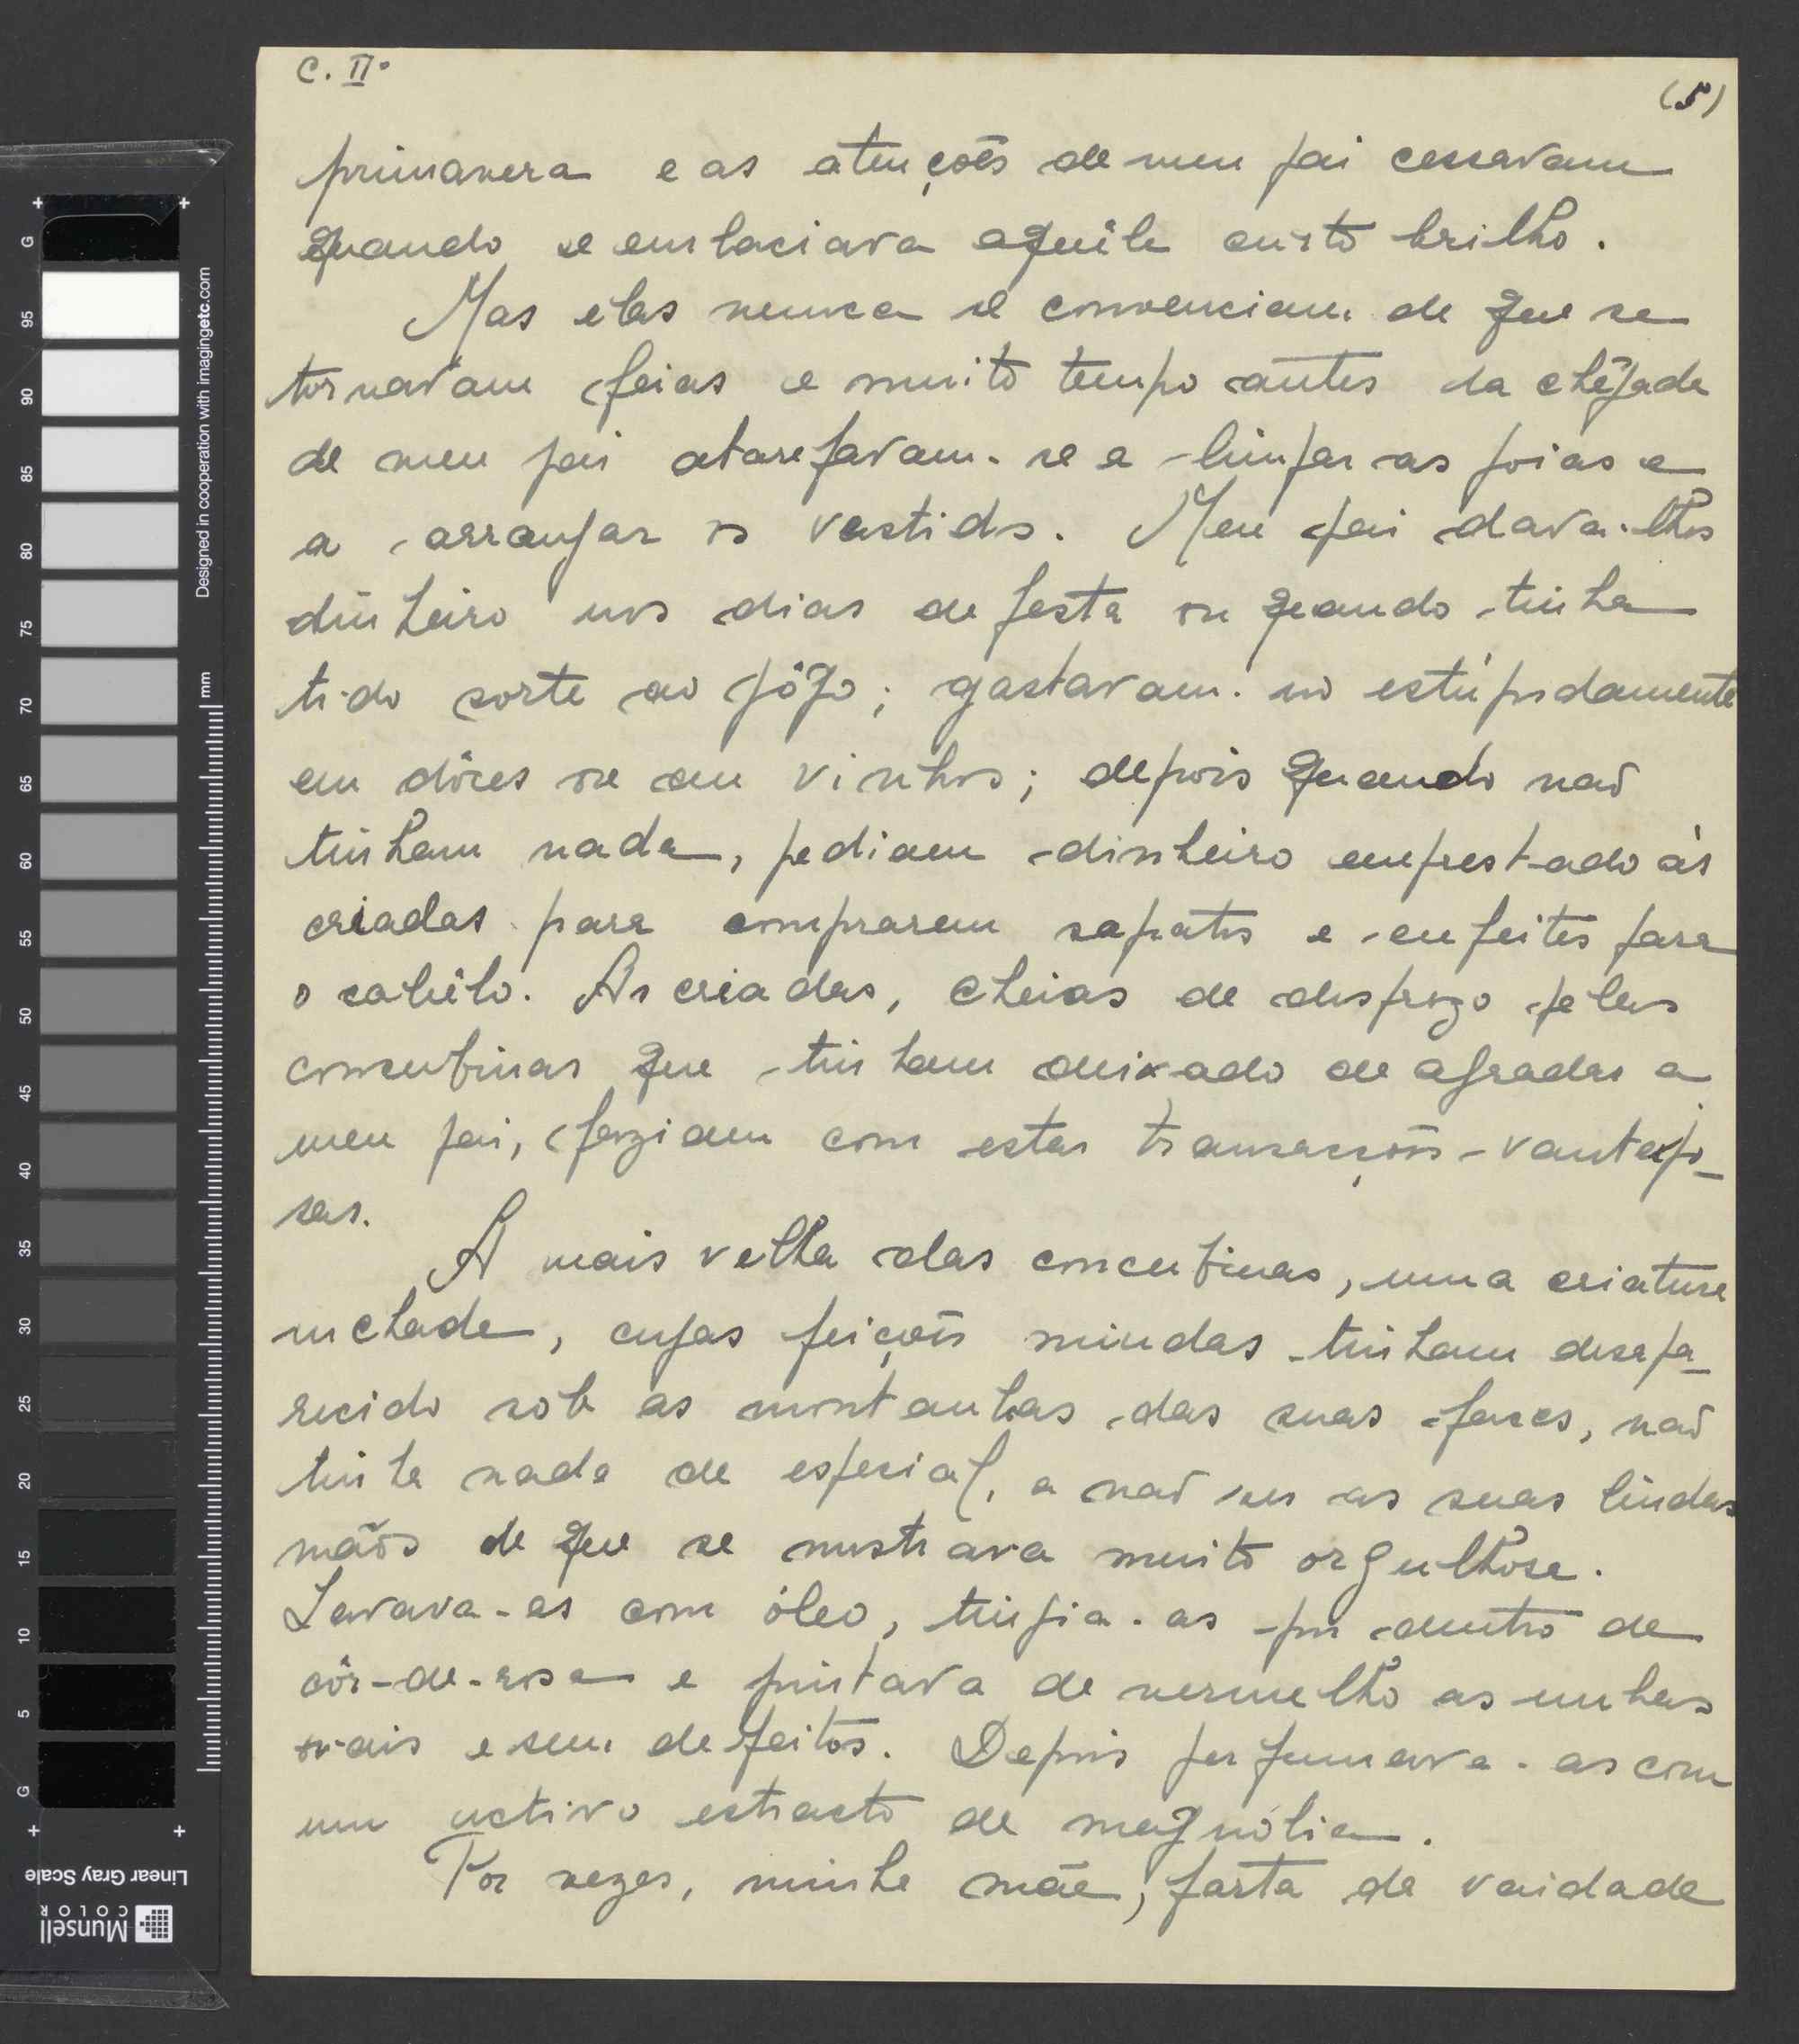 C. II.
(5)
primavera e as atenções de meu pai cessavam
quando se emlaciava aquêle curto brilho.
Mas elas nunca se convenciam de que se
tornavam feias e muito tempo antes da chegada
de meu pai atarefavam-se a limpar as joias e
a arranjar os vestidos. Meu pai dava-lhes
dinheiro nos dias de festa ou quando tinha
tido sorte ao jôgo; gastavam-no estúpidamente
em dôces ou em vinhos; depois quando não
tinham nada, pediam dinheiro emprestado às
criadas para comprarem sapatos e enfeites para
o cabêlo. As criadas, cheias de desprezo pelas
concubinas que tinham deixado de agradar a
meu pai, faziam com estas transacções vantajo-
sas.
A mais velha das concubinas, uma criatura
inchada, cujas feições miudas tinham desapa-
recido sob as montanhas das suas faces, não
tinha nada de especial, a não ser as suas lindas
mãos de que se mostrava muito orgulhosa.
Lavava-as com óleo, tingia-as por dentro de
côr-de-rosa e pintava de vermelho as unhas
ovais e sem defeitos. Depois perfumava-as com
um activo estracto de magnólia.
Por vezes, minha mãe, farta da vaidade
Designed in cooperation with imagingetc.com
mm
G
95
90
85
80
75
70
65
60
55
50
45
40
35
30
25
20
15
10
5
G
Linear Gray Scale
Munsell
COLOR